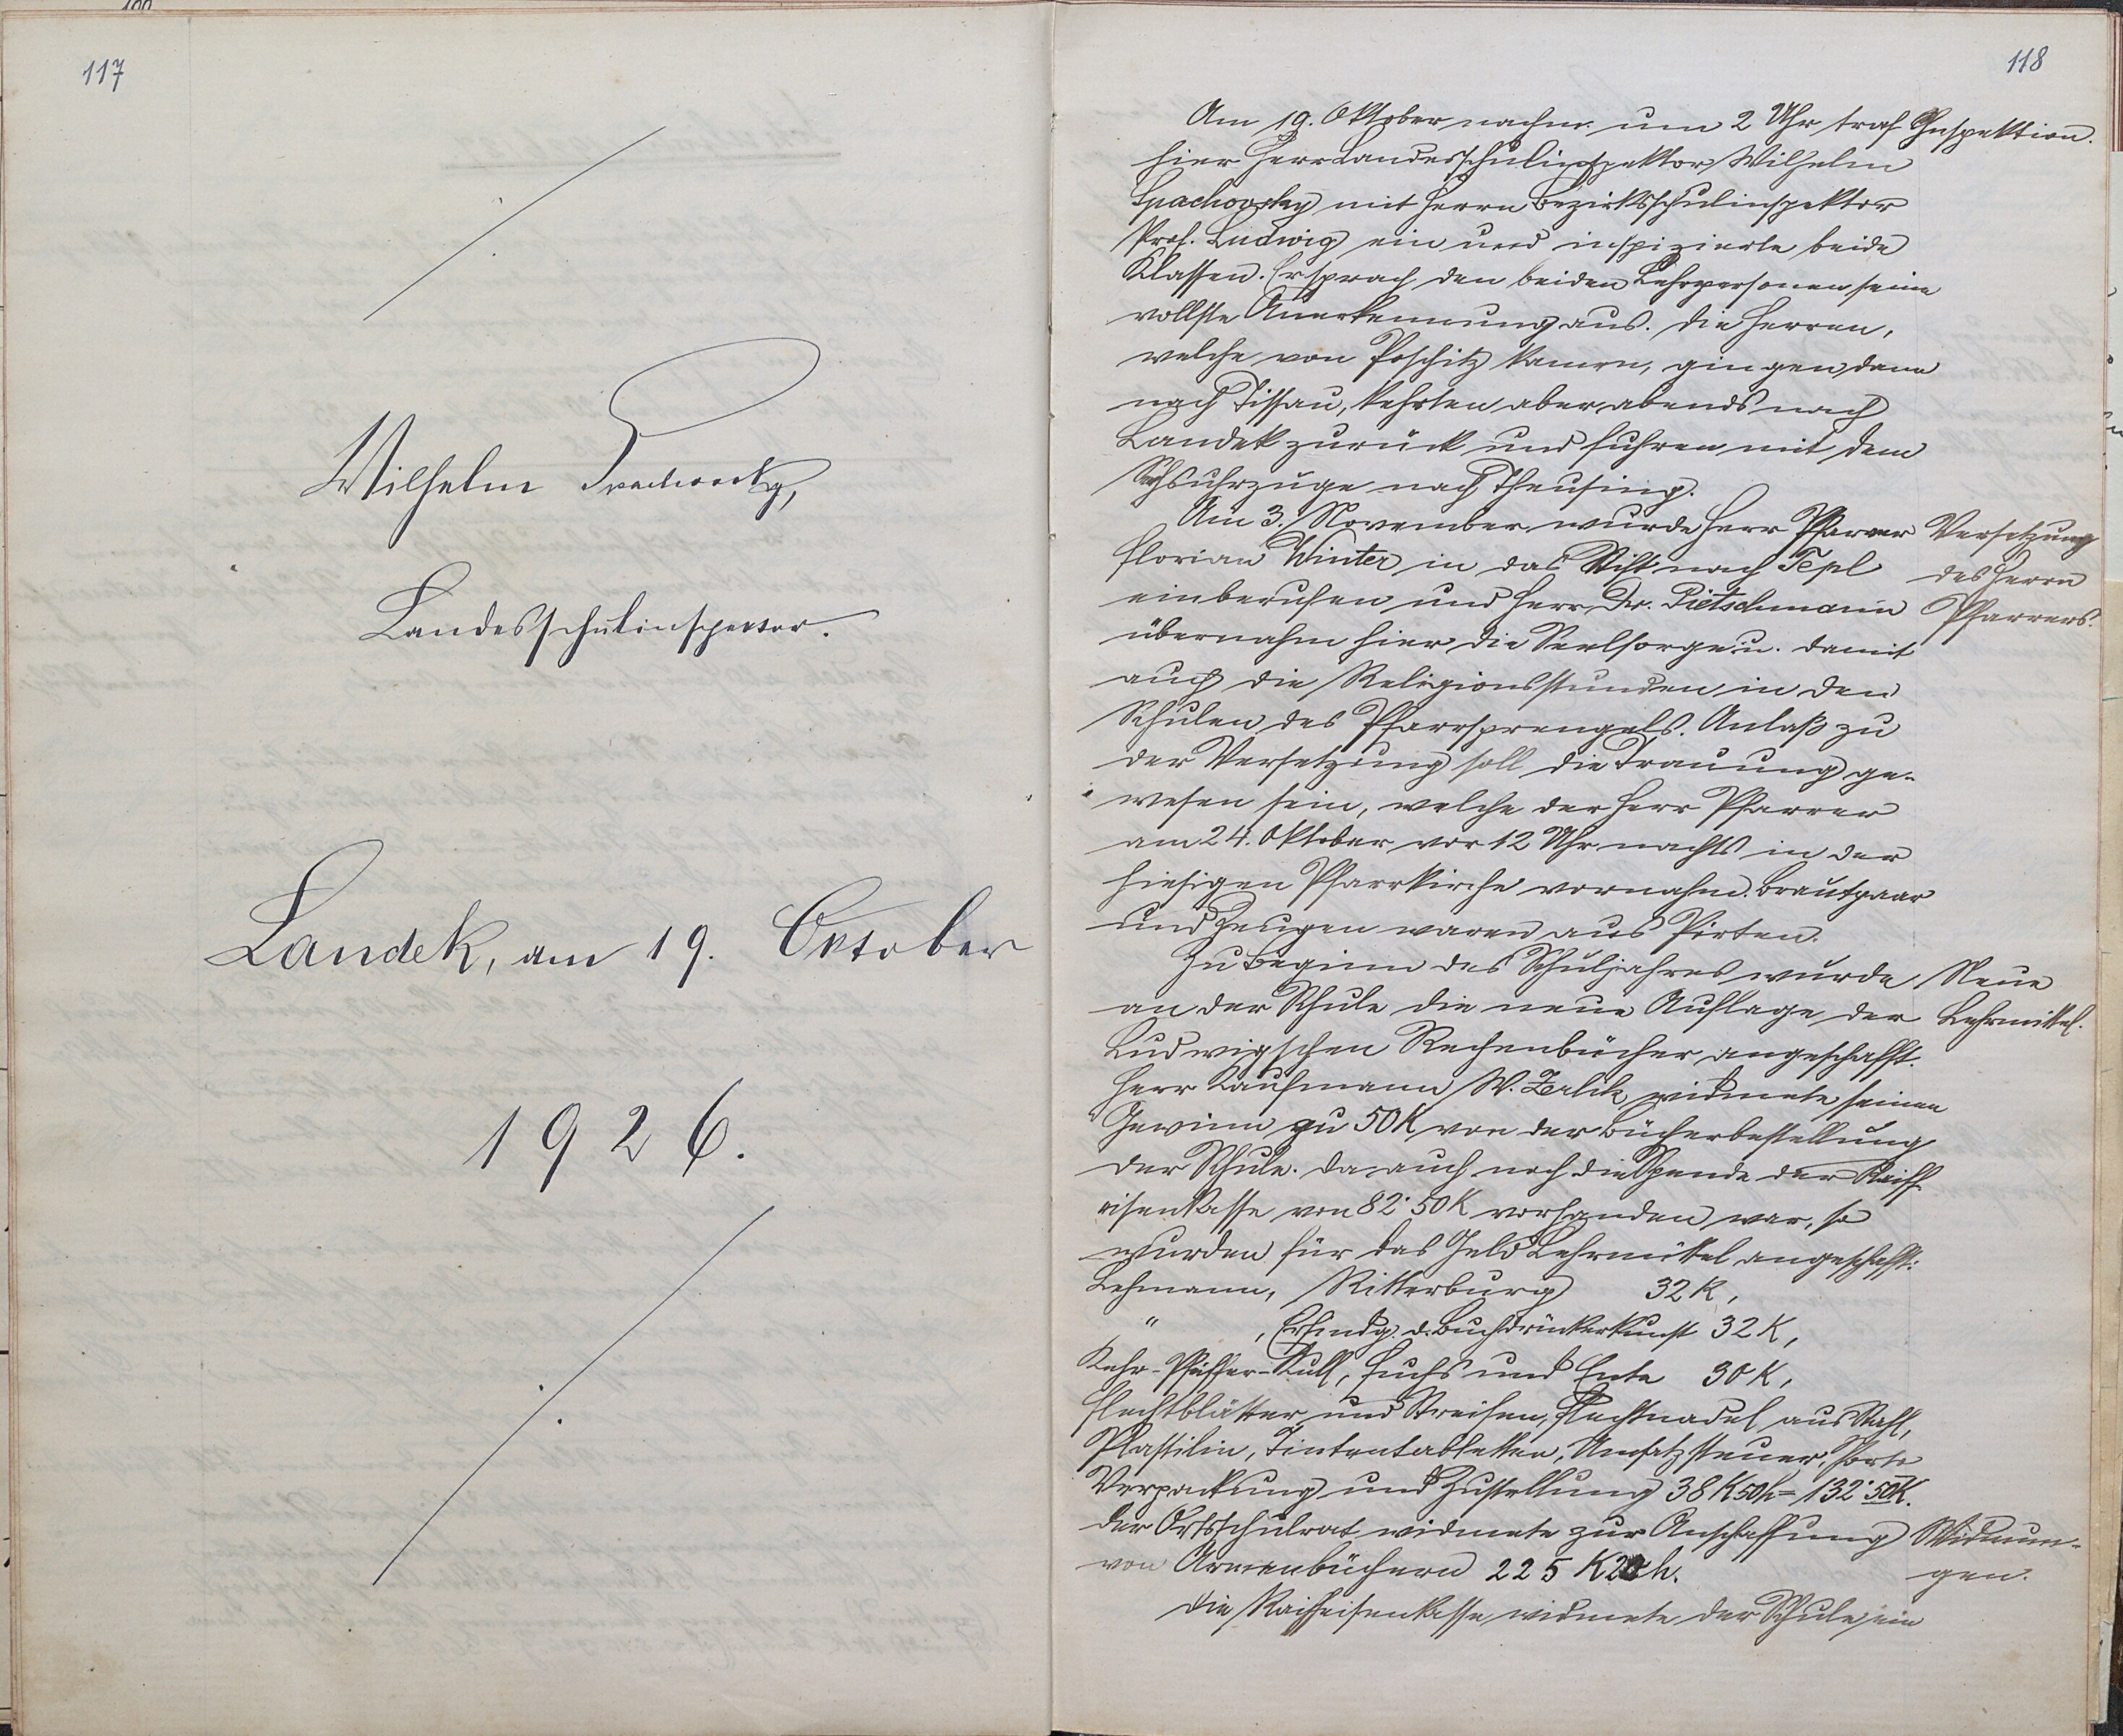 117
Wilhelm
Landesschulinspektor.
Landek, am 19. Oktober
1926.
118
Am 19. Oktober nachm. um 2 Uhr traf
Inspektion.
hier Herr Landesschulinspektor Wilhelm
Spachovsky mit Herrn Bezirksschulinspektor
Prof. Ludwig ein und inspizierte beide
Klassen. Er sprach den beiden Lehrpersonen seine
vollste Anerkennung aus. Die Herren,
welche von Poschitz kamen, gingen dann
nach Tissau, kehrten aber abends nach
Landek zurück und fuhren mit dem
Sechsuhrzuge nach Theusing.
Am 3. November wurde Herr Pfarrer
Versetzung
Florian Winter in das Stift nach Tepl
des Herrn
einberufen und Herr Dr. Pietschmann
Pfarrers.
übernahm hier die Seelsorge u. damit
auch die Religionsstunden in den
Schulen des Pfarrsprengels. Anlaß zu
der Versetzung soll die Trauung ge-
wesen sein, welche der Herr Pfarrer
am 24. Oktober vor 12 Uhr nachts in der
hiesigen Pfarrkirche vornahm. Brautpaar
und Zeugen waren aus Pirten.
Zu Beginn des Schuljahres wurde
Neue
an der Schule die neue Auflage der
Lehrmittel.
Ludwigschen Rechenbücher angeschafft.
Herr Kaufmann W. Zerlik widmete seinen
Gewinn zu 50 K von der Bücherbestellung
der Schule. Da auch noch die Spende der Raiff-
eisenkasse von 82·50 K vorhanden war, so
wurden für das Geld Lehrmittel angeschafft:
Lehmann, Ritterburg 32 K,
" , Erfindg. d. Buchdruckerkunst 32 K,
Kehr-Pfeiffer-Kull, Fuchs und Ente 30 K,
Flechtblätter und Streifen, Flechtnadel aus Stahl,
Plastilin, Tintentabletten, Umsatzsteuer, Porto
Verpackung und Zustellung 38 K 50 h = 132·50 K.
Der Ortsschulrat widmete zur Anschaffung
Widmun-
von Armenbüchern 225 K 20 h.
gen.
Die Raiffeisenkasse widmete der Schule ein